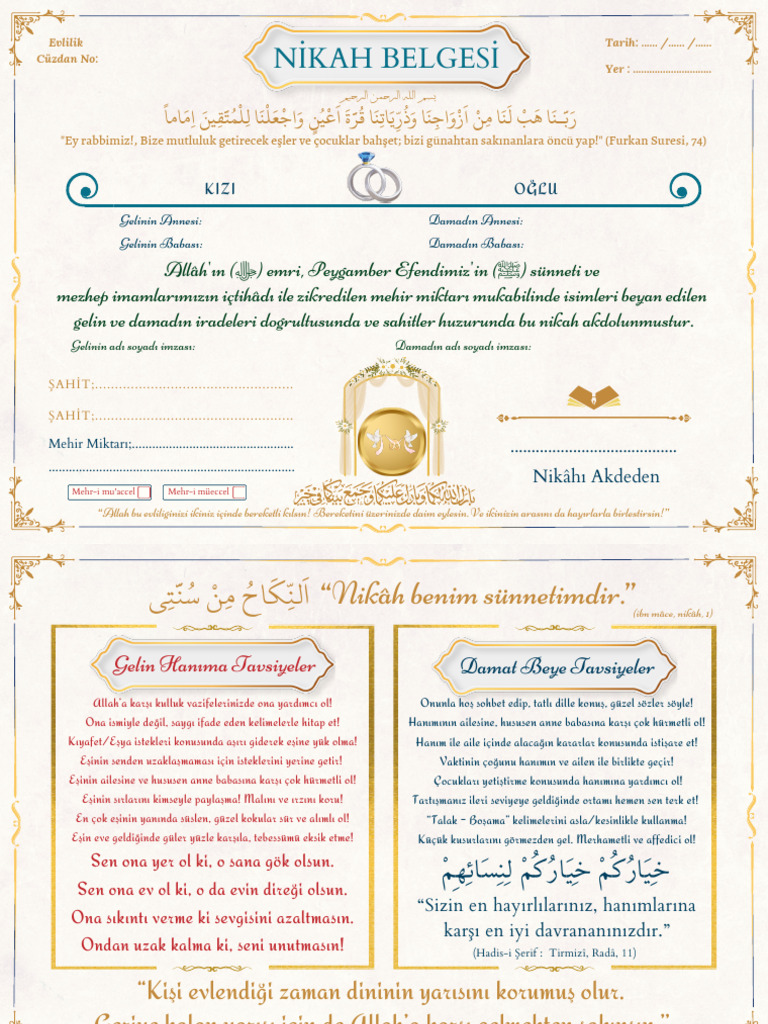 Evlilik
Cüzdan No:
NİKAH BELGESİ
Tarih: ...... /...... /......
Yer : ............................
بسم الله الرحمن الرحيم
رَبَّنَا هَبْ لَنَا مِنْ اَزْوَاجِنَا وَذُرِّيَّاتِنَا قُرَّةَ اَعْيُنٍ وَاجْعَلْنَا لِلْمُتَّقِينَ اِمَاماً
"Ey rabbimiz!, Bize mutluluk getirecek eşler ve çocuklar bahşet; bizi günahtan sakınanlara öncü yap!" (Furkan Suresi, 74)
KIZI
OĞLU
Gelinin Annesi:
Damadın Annesi:
Gelinin Babası:
Damadın Babası:
Allâh'ın () emri, Peygamber Efendimiz'in (ﷺ) sünneti ve
mezhep imamlarımızın içtihâdı ile zikredilen mehir miktarı mukabilinde isimleri beyan edilen
gelin ve damadın iradeleri dogrultusunda ve sahitler huzurunda bu nikah akdolunmustur.
Gelinin adı soyadı imzası:
Damadın adı soyadı imzası:
ŞAHİT:..................................................
ŞAHİT:..................................................
Mehir Miktarı;................................................
.........................................................................
Mehr-i mu'accel
Mehr-i müeccel
.................................................
Nikâhı Akdeden
بَارَكَ اللهُ لَكَ وَبَارَكَ عَلَيْكَ وَجَمَعَ بَيْنَكُمَا فِي خَيْرٍ
"Allah bu evliliginizi ikiniz içinde bereketli kılsın! Bereketini üzerinizde daim eylesin. Ve ikinizin arasını da hayırlarla birlestirsin!"
اَلنِّكَاحُ مِنْ سُنَّتِى "Nikâh benim sünnetimdir."
(ibn mâce, nikâh, 1)
Gelin Hanıma Tavsiyeler
Allah'a karşı kulluk vazifelerinizde ona yardımcı ol!
Ona ismiyle değil, saygı ifade eden kelimelerle hitap et!
Kıyafet/Eşya istekleri konusunda aşırı giderek eşine yük olma!
Eşinin senden uzaklaşmaması için isteklerini yerine getir!
Eşinin ailesine ve hususen anne babasına karşı çok hürmetli ol!
Eşinin sırlarını kimseyle paylaşma! Malını ve ırzını koru!
En çok eşinin yanında süslen, güzel kokular sür ve alımlı ol!
Eşin eve geldiğinde güler yüzle karşıla, tebessümü eksik etme!
Sen ona yer ol ki, o sana gök olsun.
Sen ona ev ol ki, o da evin direği olsun.
Ona sıkıntı verme ki sevgisini azaltmasın.
Ondan uzak kalma ki, seni unutmasın!
Damat Beye Tavsiyeler
Onunla hoş sohbet edip, tatlı dille konuş, güzel sözler söyle!
Hanımının ailesine, hususen anne babasına karşı çok hürmetli ol!
Hanım ile aile içinde alacağın kararlar konusunda istişare et!
Vaktinin çoğunu hanımın ve ailen ile birlikte geçir!
Çocukları yetiştirme konusunda hanımına yardımcı ol!
Tartışmanız ileri seviyeye geldiğinde ortamı hemen sen terk et!
"Talak - Boşama" kelimelerini asla/kesinlikle kullanma!
Küçük kusurlarını görmezden gel. Merhametli ve affedici ol!
خِيَارُكُمْ خِيَارُكُمْ لِنِسَائِهِمْ
"Sizin en hayırlılarınız, hanımlarına
karşı en iyi davrananınızdır."
(Hadis-i Şerif : Tirmizî, Radâ, 11)
"Kişi evlendiği zaman dininin yarısını korumuş olur.
Geriye kalan yarısı için de Allah'a karşı gelmekten sakınsın."